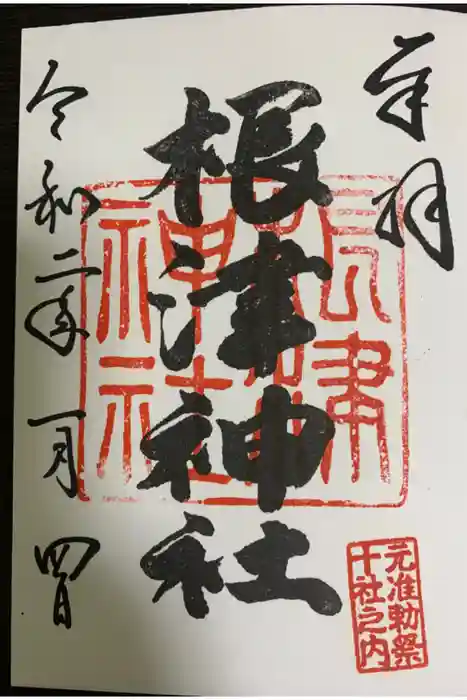 奉拝
根津神社
令和二年一月四日
元准勅祭
十社之内